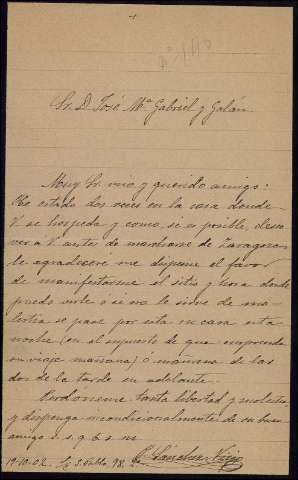 Sr. D. José Mª Gabriel y Galán.
Muy Sr. mio y querido amigo:
He estado dos veces en la casa donde
V. se hospeda y como, si es posible, deseo
ver a V. antes de marcharse de Zaragoza
le agradeceré me dispense el favor
de manifestarme el sitio y hora donde
puedo verle ó si no le sirve de mo-
lestia se pase por esta su casa esta
noche (en el supuesto de que emprenda
su viaje mañana) ó mañana de las
dos de la tarde en adelante.
Perdóneme tanta libertad y molestia
y disponga incondicionalmente de su buen
amigo s. s. q. b. s. m.
19-10-02. S. Pablo 98. 2º